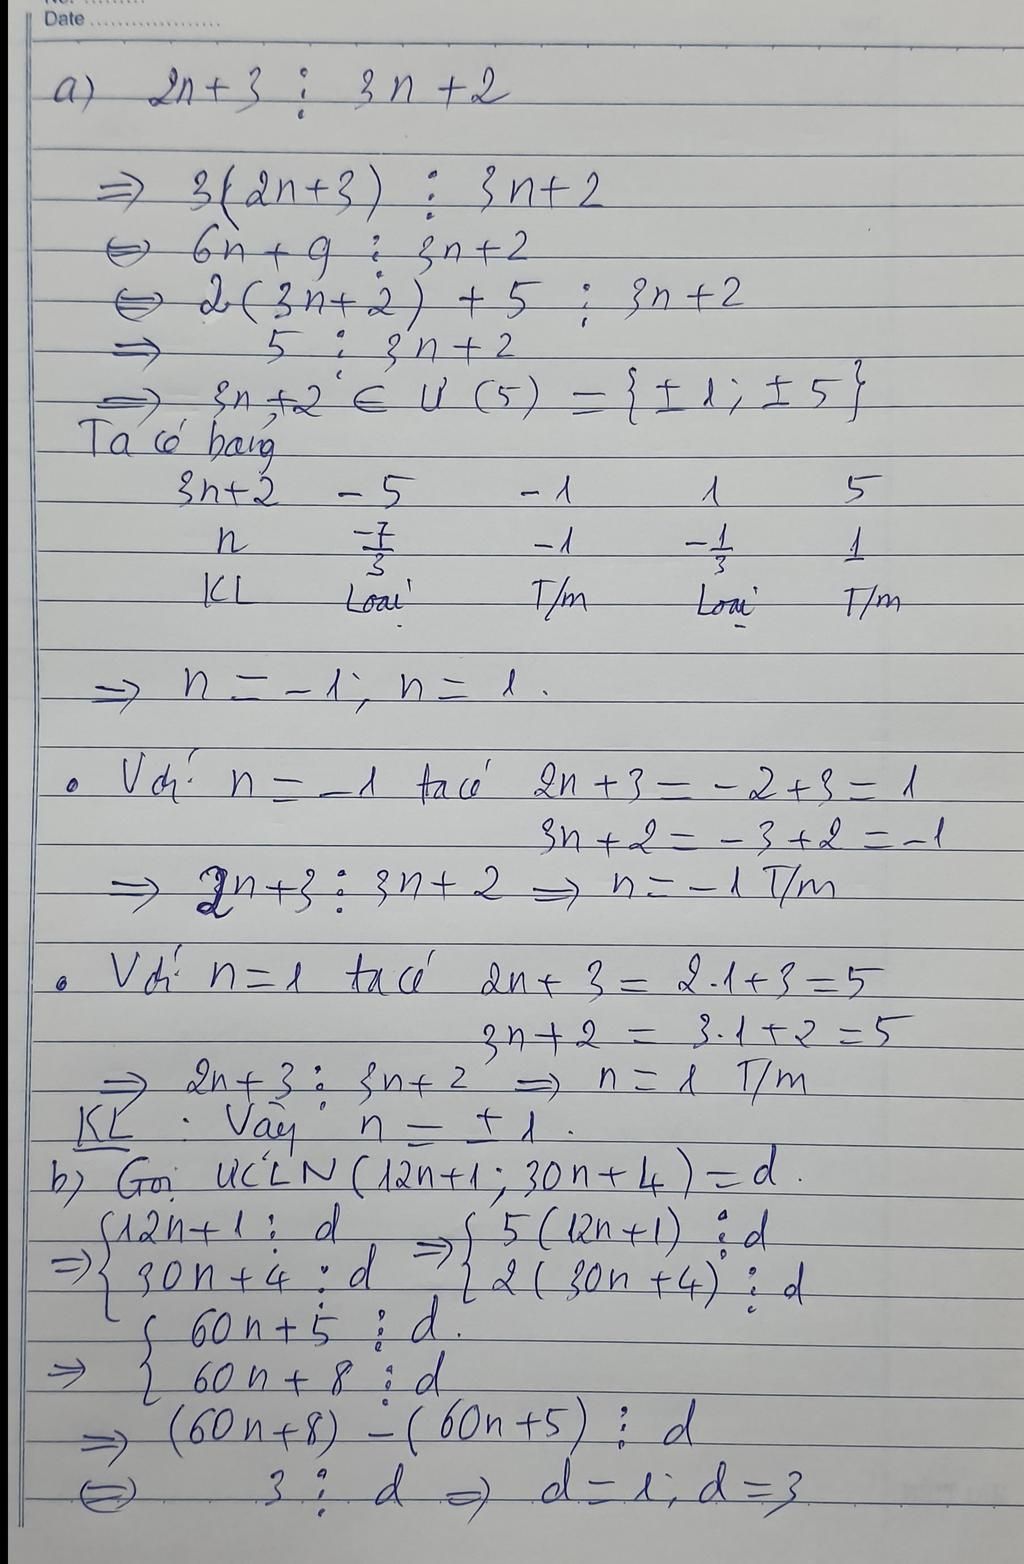 Date ....................
a) 2n+3 ⋮ 3n+2
⇒ 3(2n+3) ⋮ 3n+2
⇔ 6n+9 ⋮ 3n+2
⇔ 2(3n+2) + 5 ⋮ 3n+2
⇒ 5 ⋮ 3n+2
⇒ 3n+2 ∈ Ư(5) = {±1; ±5}
Ta có bảng
3n+2 -5 -1 1 5
n -7/3 -1 -1/3 1
KL Loại T/m Loại T/m
⇒ n = -1; n = 1.
• Với n = -1 ta có 2n+3 = -2+3 = 1
3n+2 = -3+2 = -1
⇒ 2n+3 ⋮ 3n+2 ⇒ n = -1 T/m
• Với n=1 ta có 2n+3 = 2.1+3 = 5
3n+2 = 3.1+2 = 5
⇒ 2n+3 ⋮ 3n+2 ⇒ n = 1 T/m
KL : Vậy n = ±1.
b) Gọi ƯCLN(12n+1; 30n+4) = d.
⇒ { 12n+1 ⋮ d ⇒ { 5(12n+1) ⋮ d
30n+4 ⋮ d 2(30n+4) ⋮ d
⇒ { 60n+5 ⋮ d.
60n+8 ⋮ d
⇒ (60n+8) - (60n+5) ⋮ d
⇔ 3 ⋮ d ⇒ d=1; d=3